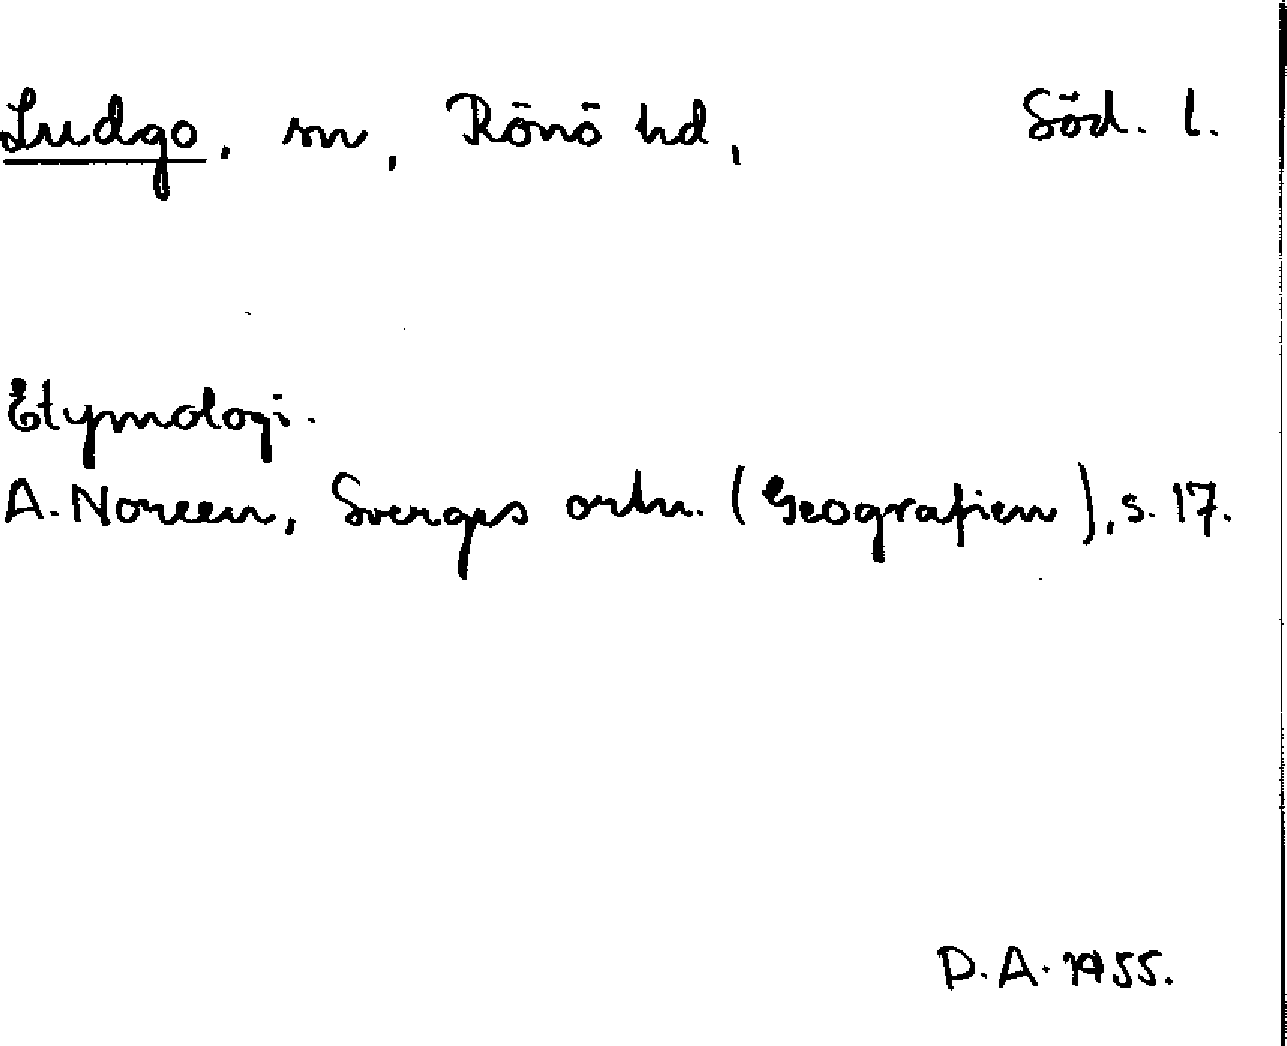 Ludgo, sn, Rönö hd, Söd. l.
Etymologi.
A. Noreen, Sverges ortn. (Geografien), s. 17.
D.A. 1955.